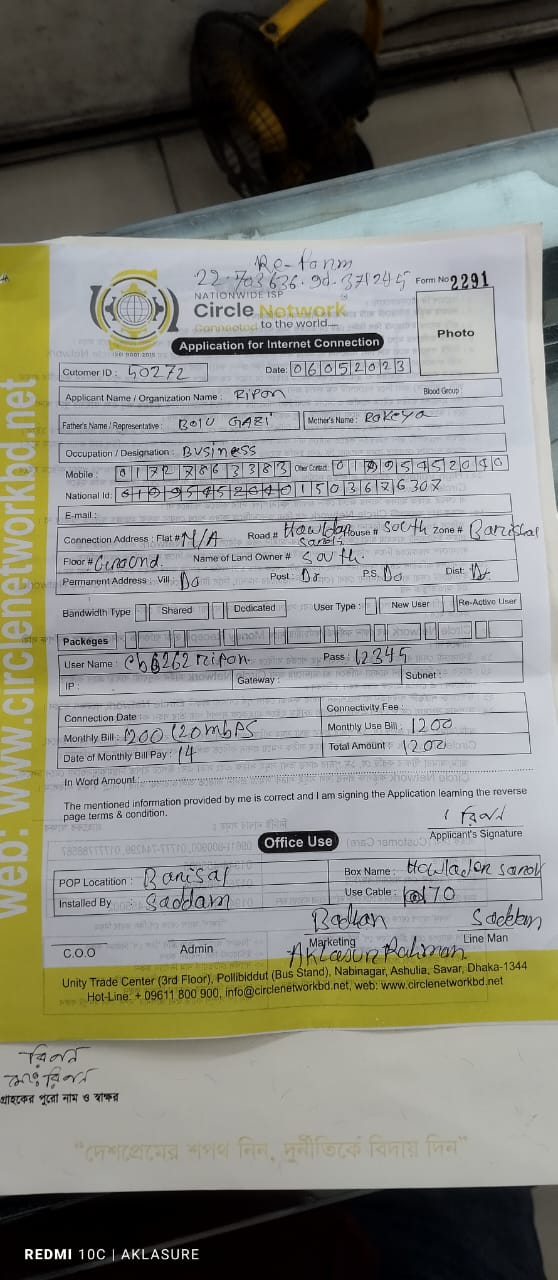 Re-Form
22.703636.90.371245 Form No 2291
NATIONWIDE ISP
Circle Network
Connected to the world....
ISO 9001:2015
Application for Internet Connection
Photo
Cutomer ID : 50272 Date: 06052023
Applicant Name / Organization Name : Ripon Blood Group :
Father's Name / Representative : Bolu GAZI Mother's Name : Rokeya
Occupation / Designation : Business
Mobile : 01727863383 Other Contact :
National Id: 1503676307
E-mail :
Connection Address : Flat # N/A Road # Howlader House # South Zone # Barishal
Floor # Name of Land Owner # South
Permanent Address : Vill Do Post : Do P.S. Do Dist: Do
Bandwidth Type Shared Dedicated User Type : New User Re-Active User
Packeges
User Name : Pass : 12345
IP : Gateway : Subnet :
Connection Date : Connectivity Fee :
Monthly Bill : 1200 (20mbps Monthly Use Bill : 1200
Date of Monthly Bill Pay : 14 Total Amount : 1200
In Word Amount :
The mentioned information provided by me is correct and I am signing the Application learning the reverse
page terms & condition.
রিপন
Applicant's Signature
Office Use
POP Locatition : Barisal Box Name :
Installed By : Saddam Use Cable : 170
Saddam
C.O.O Admin Marketing Line Man
Aklasur Rahman
Unity Trade Center (3rd Floor), Pollibiddut (Bus Stand), Nabinagar, Ashulia, Savar, Dhaka-1344
Hot-Line: + 09611 800 900, info@circlenetworkbd.net, web: www.circlenetworkbd.net
web: www.circlenetworkbd.net
রিপন
মোঃ রিপন
গ্রাহকের পুরো নাম ও স্বাক্ষর
“দেশপ্রেমের শপথ নিন, দুর্নীতিকে বিদায় দিন”
REDMI 10C | AKLASURE